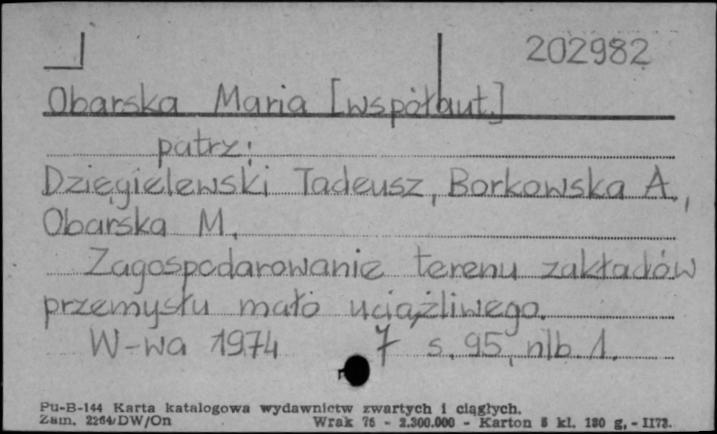 202982
Obarska Maria [współaut.]
patrz:
Dzięgielewski Tadeusz, Borkowska A.,
Obarska M.
Zagospodarowanie terenu zakładów
przemysłu mało uciążliwego.
W-wa 1974 7 s. 95, nlb 1.
Pu-B-144 Karta katalogowa wydawnictw zwartych i ciągłych.
Zam. 2264/DW/On Wrak 76 - 2.300.000 - Karton 5 kl. 180 g, - II73.